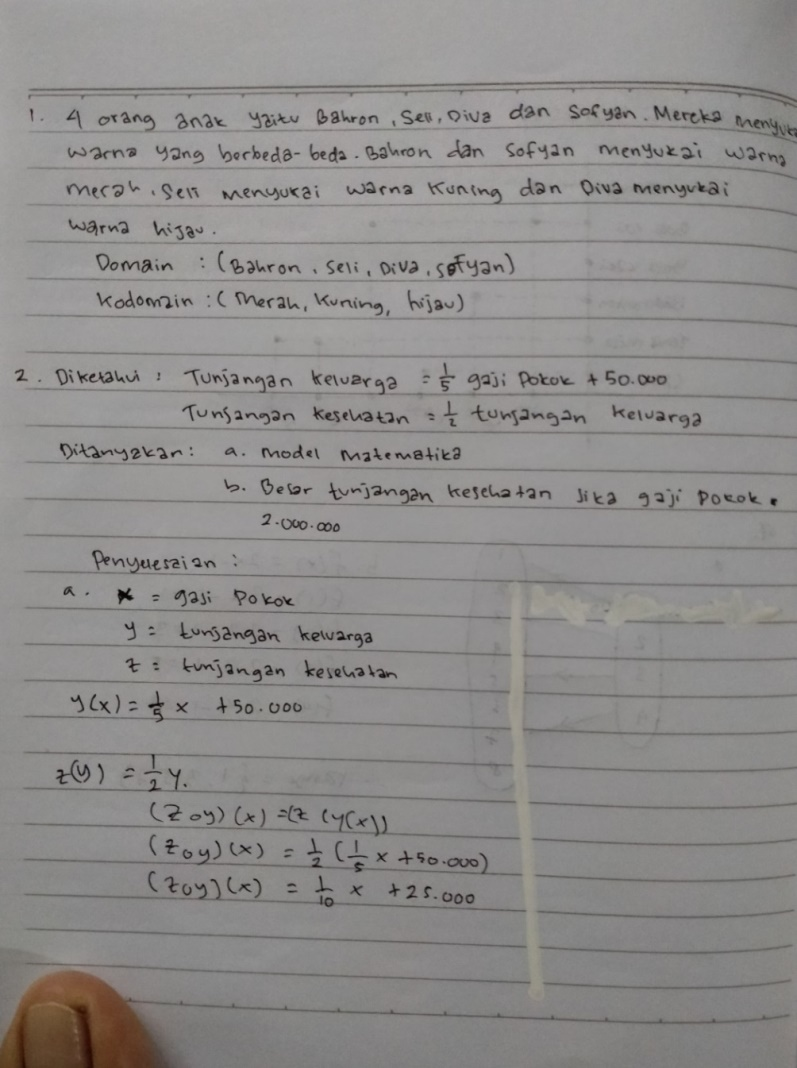 1. 4 orang anak yaitu Bahron, Seli, Diva dan Sofyan. Mereka menyukai
warna yang berbeda-beda. Bahron dan Sofyan menyukai warna
merah, Seli menyukai warna Kuning dan Diva menyukai
warna hijau.
Domain : (Bahron, Seli, Diva, Sofyan)
Kodomain : (Merah, Kuning, hijau)
2. Diketahui : Tunjangan keluarga = 1/5 gaji Pokok + 50.000
Tunjangan kesehatan = 1/2 tunjangan keluarga
Ditanyakan: a. Model Matematika
b. Besar tunjangan kesehatan Jika gaji Pokok
2.000.000
Penyelesaian :
a. x = gaji Pokok
y = tunjangan keluarga
z = tunjangan kesehatan
y(x) = 1/5 x + 50.000
z(y) = 1/2 y.
(Z o y) (x) = (z (y(x))
(z o y) (x) = 1/2 (1/5 x + 50.000)
(z o y) (x) = 1/10 x + 25.000